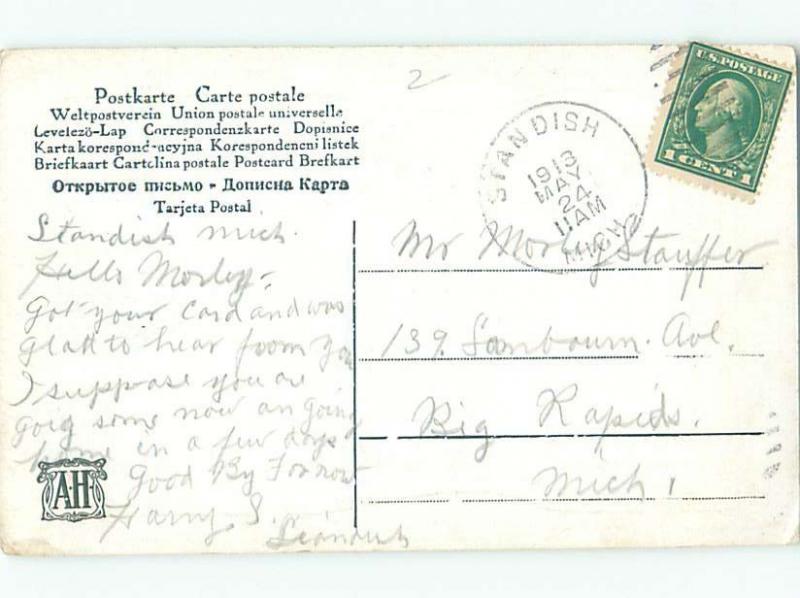 2
Postkarte Carte postale
Weltpostverein Union postale universelle
Levelezö-Lap Correspondenzkarte Dopisnice
Karta korespondencyjna Korespondencni listek
Briefkaart Cartolina postale Postcard Brefkort
Открытое письмо - Дописна Карта
Tarjeta Postal
Standish Mich.
Hello Morley,
Got your Card and was
glad to hear froom you
I suppase you are
goig some now an going
home in a few days
Good By For now
Harry S.
Standish
A·H
STANDISH
1913
MAY
24
11AM
MICH
U.S. POSTAGE
1 CENT 1
Mr Morley Stauffer
139 Sanbourn. Ave.
Big Rapids.
Mich.